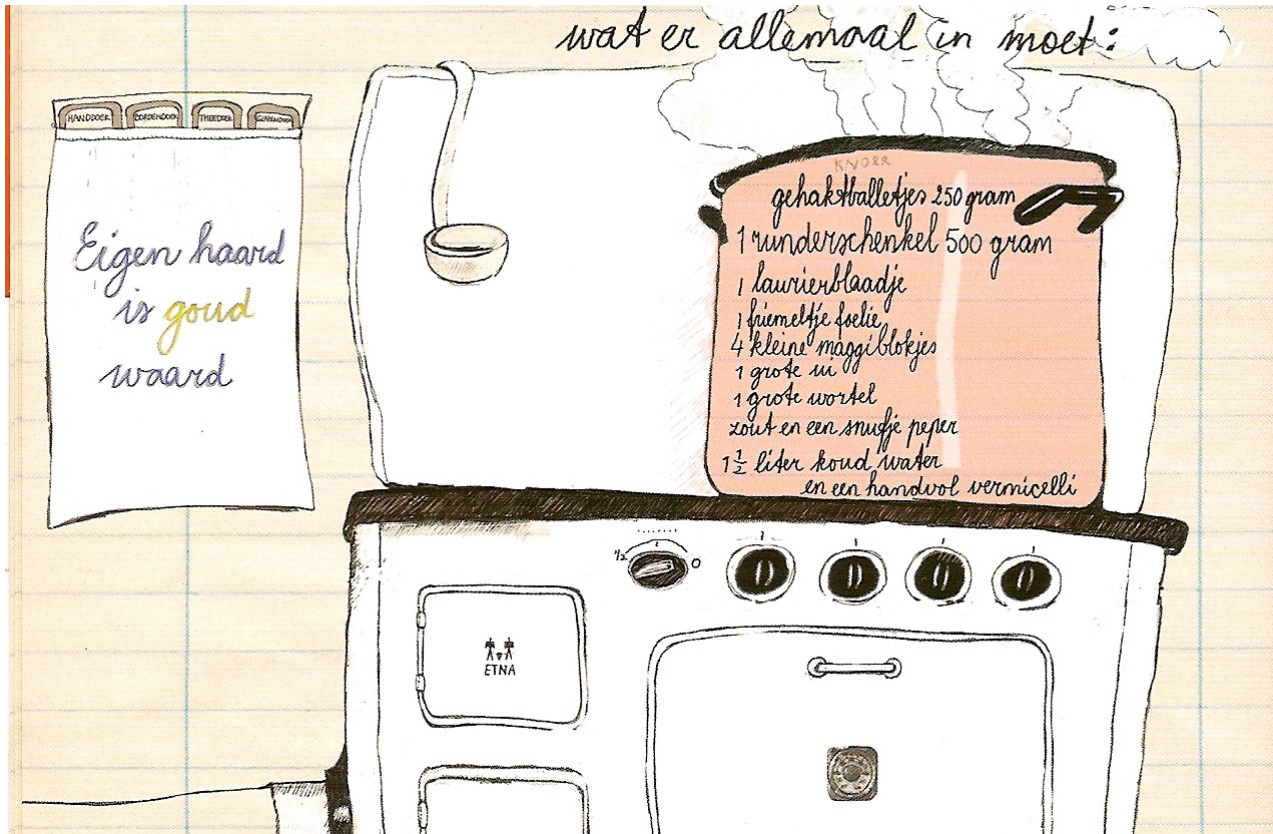 wat er allemaal in moet:
HANDDOEK BORDENDOEK THEEDOEK GLAZENDOEK
Eigen haard
is goud
waard
KNORR
gehaktballetjes 250 gram
1 runderschenkel 500 gram
1 laurierblaadje
1 friemeltje foelie
4 kleine maggiblokjes
1 grote ui
1 grote wortel
zout en een snufje peper
1 1/2 liter koud water
en een handvol vermicelli
1/2 0
ETNA